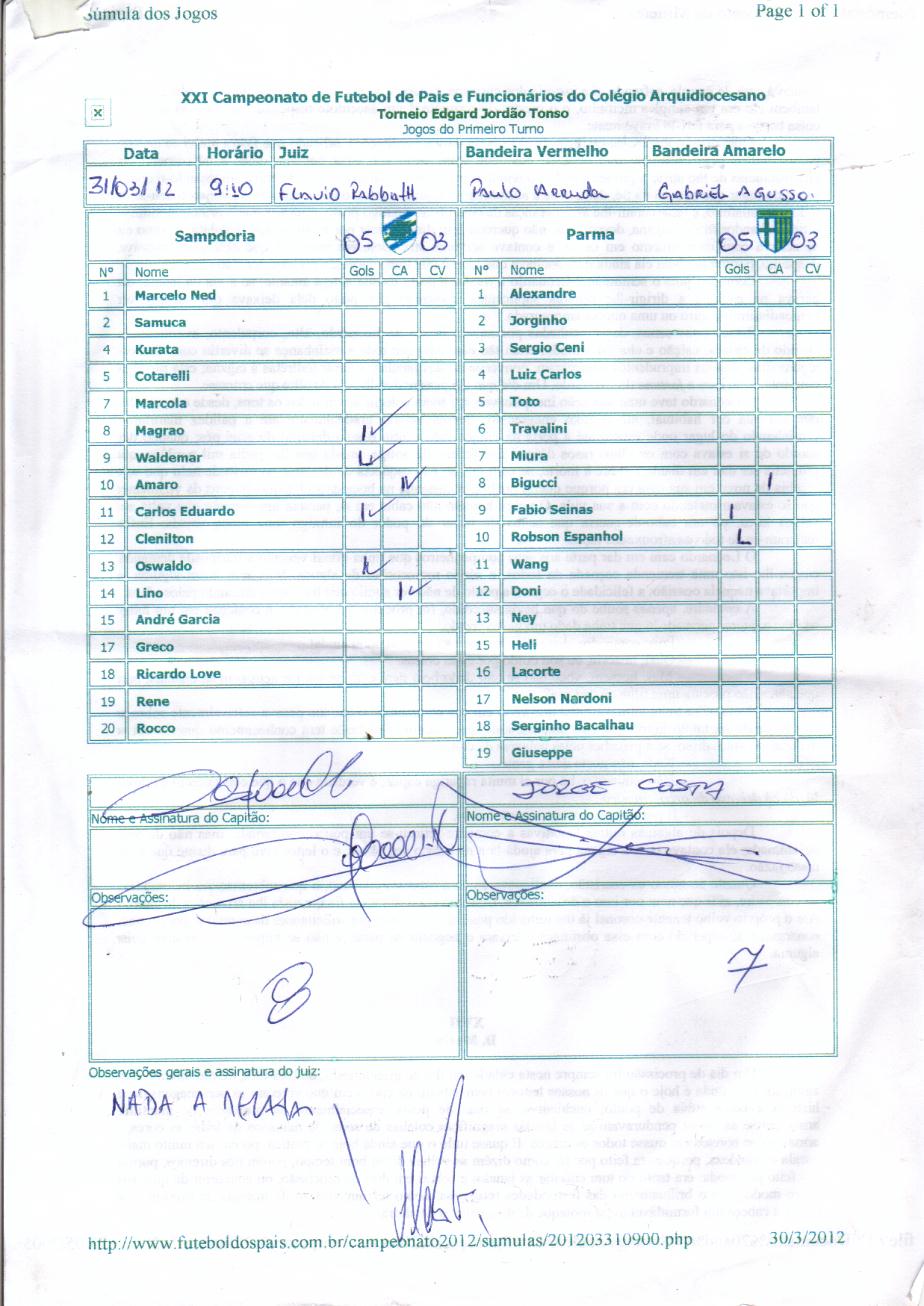 Súmula dos Jogos Page 1 of 1
XXI Campeonato de Futebol de Pais e Funcionários do Colégio Arquidiocesano
Torneio Edgard Jordão Tonso
Jogos do Primeiro Turno
Data Horário Juiz Bandeira Vermelho Bandeira Amarelo
31/03/12 9:10 Flavio Rabbath Paulo Arruda Gabriel Agusso.
Sampdoria 05 03 Parma 05 03
Nº Nome Gols CA CV Nº Nome Gols CA CV
1 Marcelo Ned 1 Alexandre
2 Samuca 2 Jorginho
4 Kurata 3 Sergio Ceni
5 Cotarelli 4 Luiz Carlos
7 Marcola 5 Toto
8 Magrao 1 6 Travalini
9 Waldemar 7 Miura
10 Amaro 1 8 Bigucci 1
11 Carlos Eduardo 1 9 Fabio Seinas 1
12 Clenilton 10 Robson Espanhol
13 Oswaldo 11 Wang
14 Lino 1 12 Doni
15 André Garcia 13 Ney
17 Greco 15 Heli
18 Ricardo Love 16 Lacorte
19 Rene 17 Nelson Nardoni
20 Rocco 18 Serginho Bacalhau
19 Giuseppe
JORGE COSTA
Nome e Assinatura do Capitão: Nome e Assinatura do Capitão:
Observações: Observações:
8 7
Observações gerais e assinatura do juiz:
NADA A
http://www.futeboldospais.com.br/campeonato2012/sumulas/201203310900.php 30/3/2012